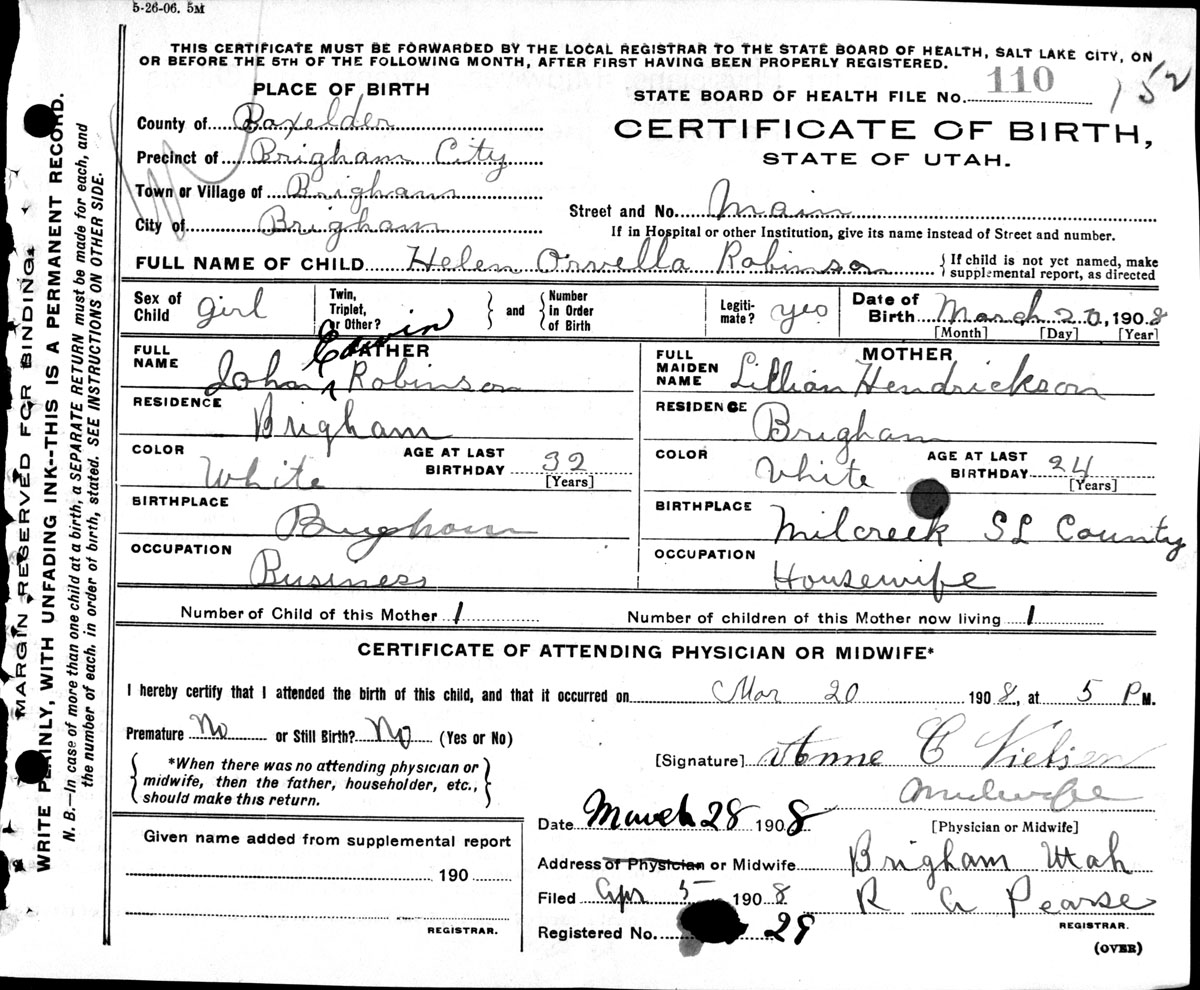 5-26-06. 5M
THIS CERTIFICATE MUST BE FORWARDED BY THE LOCAL REGISTRAR TO THE STATE BOARD OF HEALTH, SALT LAKE CITY, ON
OR BEFORE THE 5TH OF THE FOLLOWING MONTH, AFTER FIRST HAVING BEEN PROPERLY REGISTERED.
PLACE OF BIRTH
STATE BOARD OF HEALTH FILE No. 110 152
County of Boxelder
CERTIFICATE OF BIRTH,
Precinct of Brigham City
STATE OF UTAH.
Town or Village of Brigham
Street and No. Main
City of Brigham
If in Hospital or other Institution, give its name instead of Street and number.
FULL NAME OF CHILD Helen Orvella Robinson { If child is not yet named, make
supplemental report, as directed
Sex of Child girl
Twin, Triplet, or Other? } and { Number in Order of Birth
Legiti-mate? yes
Date of Birth March 20, 1908
[Month] [Day] [Year]
FATHER
FULL NAME John Edwin Robinson
MOTHER
FULL MAIDEN NAME Lillian Hendrickson
RESIDENCE Brigham
RESIDENCE Brigham
COLOR White AGE AT LAST BIRTHDAY 32 [Years]
COLOR White AGE AT LAST BIRTHDAY 24 [Years]
BIRTHPLACE Brigham
BIRTHPLACE Milcreek SL County
OCCUPATION Business
OCCUPATION Housewife
Number of Child of this Mother 1
Number of children of this Mother now living 1
CERTIFICATE OF ATTENDING PHYSICIAN OR MIDWIFE*
I hereby certify that I attended the birth of this child, and that it occurred on Mar 20 1908, at 5 P M.
Premature No or Still Birth? No (Yes or No)
[Signature] Anne C Nielsen
{ *When there was no attending physician or
midwife, then the father, householder, etc.,
should make this return. }
Midwife
[Physician or Midwife]
Date March 28 1908
Given name added from supplemental report
190
REGISTRAR.
Address of Physician or Midwife Brigham Utah
Filed Apr 5 1908 R A Pearse
REGISTRAR.
Registered No. 29
(OVER)
MARGIN RESERVED FOR BINDING.
WRITE PLAINLY, WITH UNFADING INK--THIS IS A PERMANENT RECORD.
N. B.—In case of more than one child at a birth, a SEPARATE RETURN must be made for each, and
the number of each, in order of birth, stated. SEE INSTRUCTIONS ON OTHER SIDE.